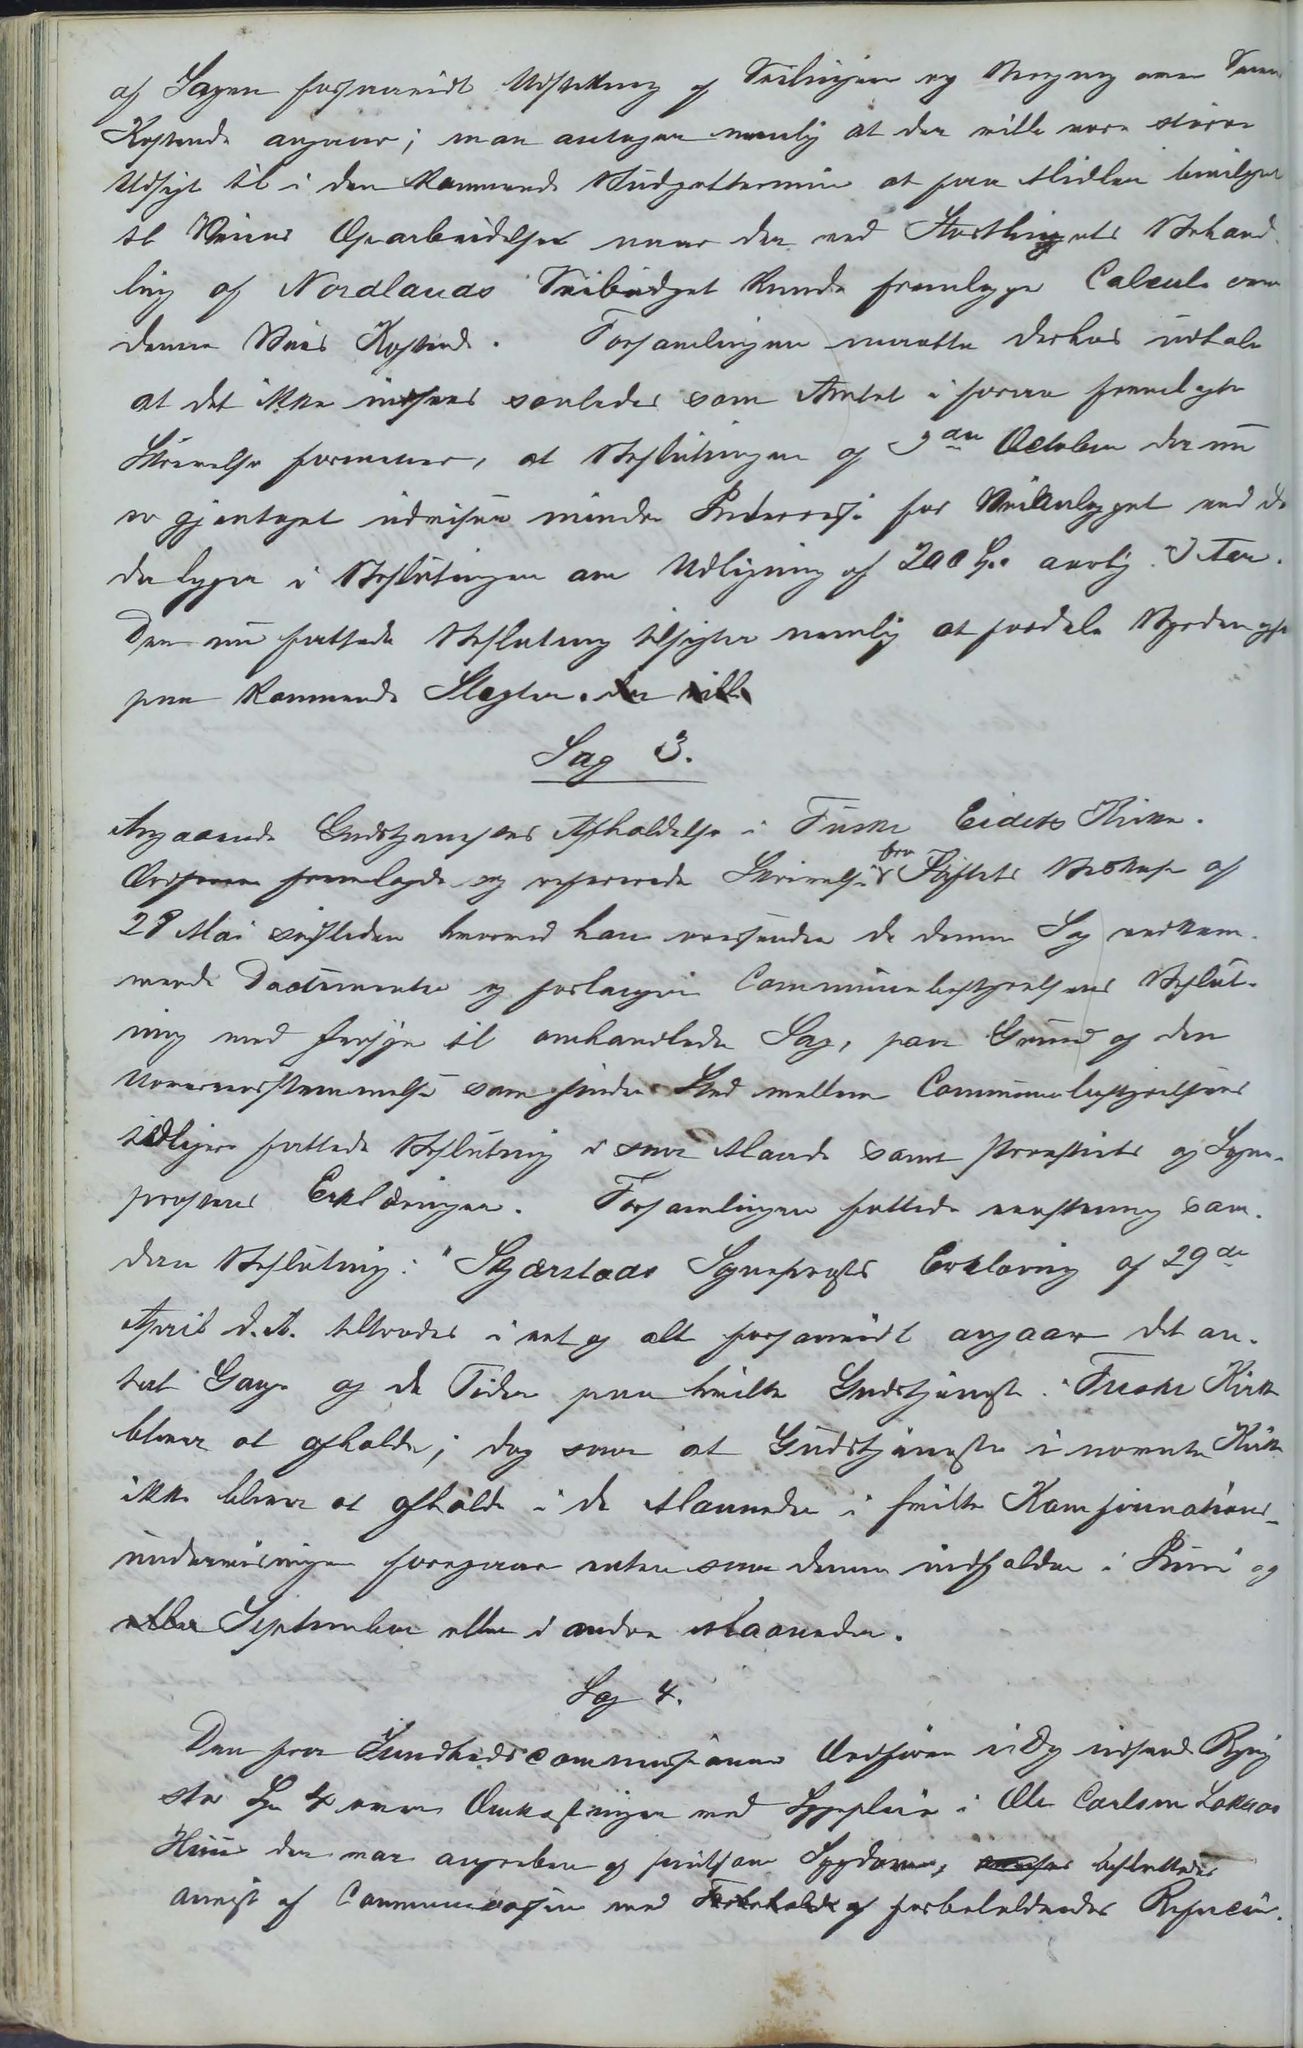 af Sagen forsaavidt Udstikning af Veilinjen og Beregning over Veiens
Kostende angaar; man antager nemlig at der vilde være større
Udsigt til i den kommende Budgettermin at faa Midler bevilget
til Veiens Oparbeidelse naar der ved Storthingets Behand-
ling af Nordlands Veibudget kunde fremlægges Calcule over
denne Veis Kostende. Forsamlingen maatte derhos udtale
at det ikke indsees saaledes som Amtet i foran fremlagte
Skrivelse formener, at Beslutningen af 9de October der nu
er gjentaget udviser mindre Interesse for Veianlægget end det
der ligger i Beslutningen om Udligning af 200 Spd aarlig i 5 Aar.
Den nu fattede Beslutning tilsigter nemlig at fordele Byrden ogsaa
paa kommende Slægter. der vilde
Sag 3.
Angaaende Gudstjenestens Afholdelse i Fuske Eidets Kirke.
Ordføreren fremlagde og refererede Skrivelse fra Stiftets Biskop af
28 Mai sidstleden hvormed han oversender de denne Sag vedkom-
mende Documenter og forlanger Communebestyrelsens Beslut-
ning med Hensyn til omhandlede Sag, paa Grund af den
Uoverensstemmelse som finder Sted mellem Communebestyrelsens
tidligere fattede Beslutning i saa Maade samt Provstiets og Sogne-
prestens Erklæringer. Forsamlingen fattede eenstemmig saa-
dan Beslutning: "Skjærstads Sogneprests Erklæring af 29de
April d.A. tiltrædes i eet og alt forsaavidt angaar det an-
tal Gange og de Tider paa hvilke Gudstjeneste i Fuske Kirke
bliver at afholde; dog saa at Gudstjeneste i nævnte Kirke
ikke bliver at afholde i de Maaneder i hvilke Konfirmations-
undervisningen foregaar enten saa denne indfalder i Juni og
eller September eller i andre Maaneder.
Sag 4.
Den fra Sundhedscommissionens Ordfører i Dag indsendte Regning
stor Spd 4 over Omkostninger med Sygepleie i Ole Carlsen Løkaas
Huus der var angreben af smitsom Sygdom, besluttedes
anvist af Communecassen med Forbeholde af forbeholdendes Refusion.